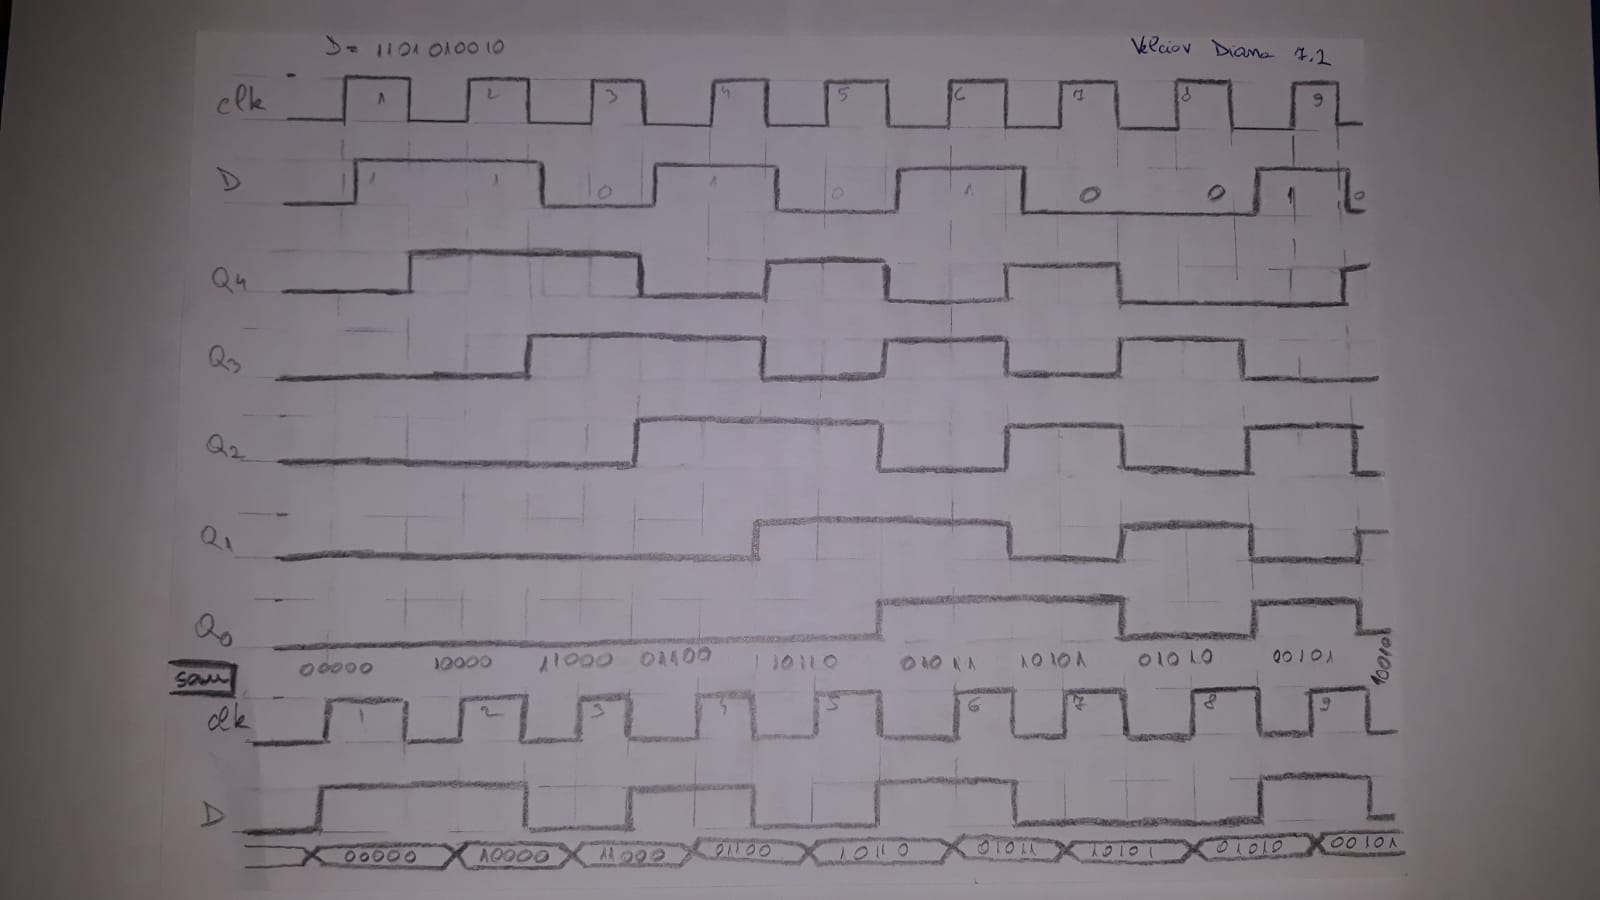 D = 1101010010
Velciov Diana 7.2
clk 1 2 3 4 5 6 7 8 9
D 1 1 0 1 0 1 0 0 1 0
Q4
Q3
Q2
Q1
Q0
00000 10000 11000 01100 10110 01011 10101 01010 00101 10010
sau
clk 1 2 3 4 5 6 7 8 9
D
00000 10000 11000 01101 11010 01010 00101